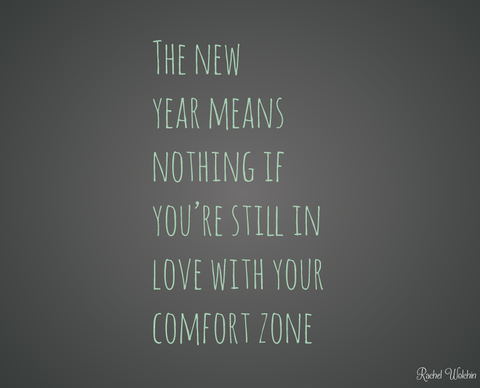 The new
year means
nothing if
you're still in
love with your
comfort zone
Rachel Wolchin